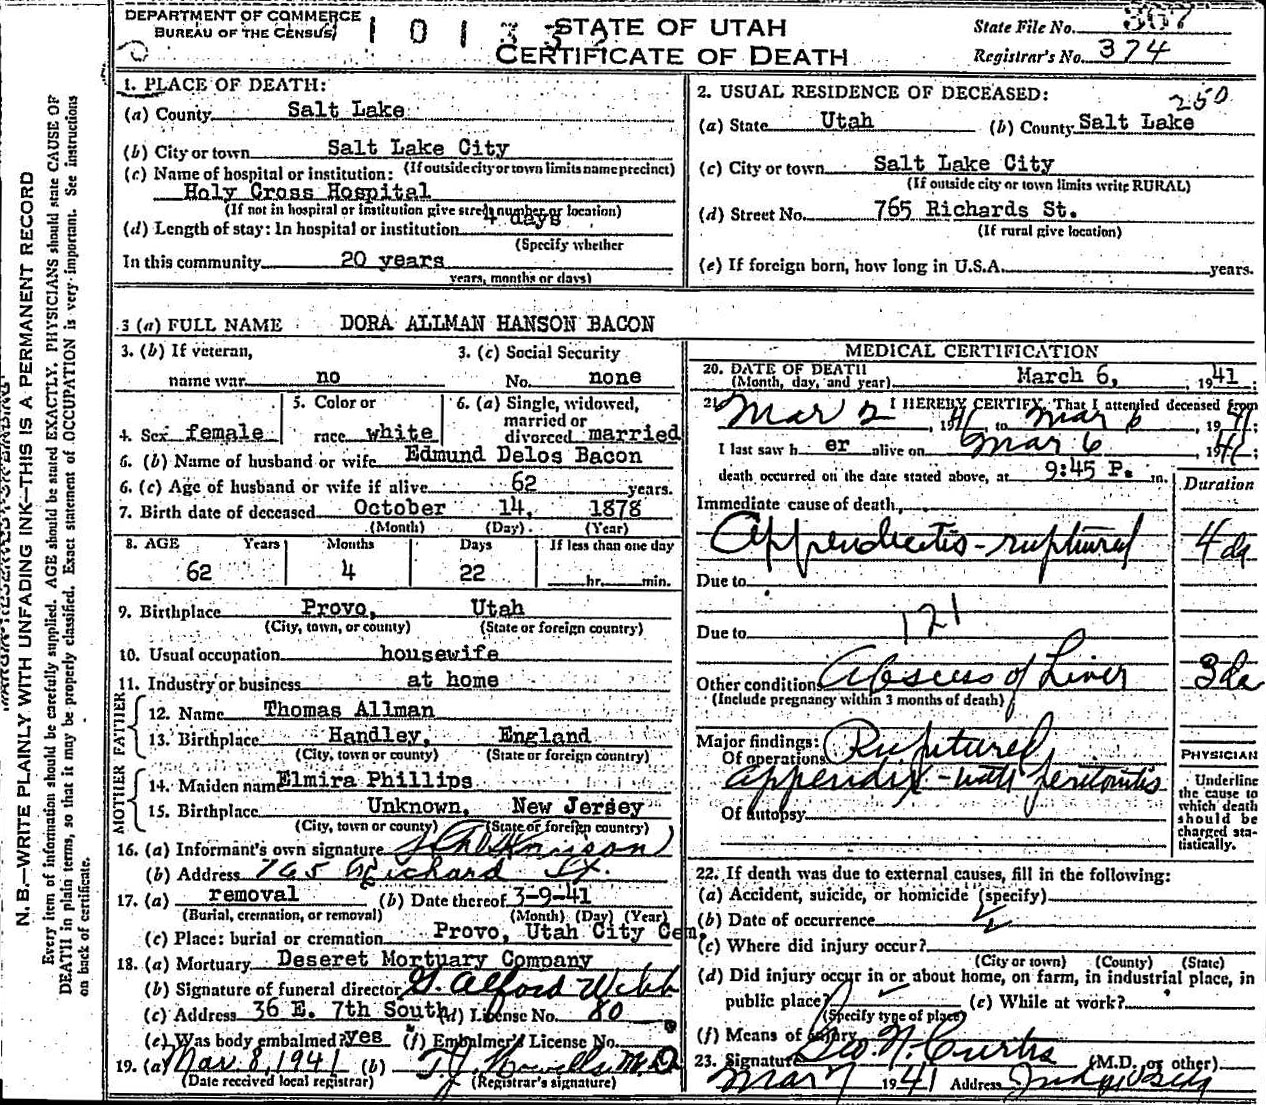 DEPARTMENT OF COMMERCE
BUREAU OF THE CENSUS
STATE OF UTAH
CERTIFICATE OF DEATH
State File No.
Registrar's No. 374
1. PLACE OF DEATH:
(a) County Salt Lake
(b) City or town Salt Lake City
(If outside city or town limits name precinct)
(c) Name of hospital or institution:
Holy Cross Hospital
(If not in hospital or institution give street number or location)
(d) Length of stay: In hospital or institution 4 days
(Specify whether
In this community 20 years
years, months or days)
2. USUAL RESIDENCE OF DECEASED:
250
(a) State Utah (b) County Salt Lake
(c) City or town Salt Lake City
(If outside city or town limits write RURAL)
(d) Street No. 765 Richards St.
(If rural give location)
(e) If foreign born, how long in U.S.A. years.
3 (a) FULL NAME DORA ALLMAN HANSON BACON
3. (b) If veteran, name war no
3. (c) Social Security No. none
4. Sex female
5. Color or race white
6. (a) Single, widowed, married or divorced married
6. (b) Name of husband or wife Edmund Delos Bacon
6. (c) Age of husband or wife if alive 62 years.
7. Birth date of deceased October 14, 1878
(Month) (Day) (Year)
8. AGE Years Months Days If less than one day
62 4 22 hr. min.
9. Birthplace Provo, Utah
(City, town, or county) (State or foreign country)
10. Usual occupation housewife
11. Industry or business at home
FATHER
12. Name Thomas Allman
13. Birthplace Handley, England
(City, town or county) (State or foreign country)
MOTHER
14. Maiden name Elmira Phillips
15. Birthplace Unknown, New Jersey
(City, town or county) (State or foreign country)
16. (a) Informant's own signature
(b) Address 765 Richard St.
17. (a) removal (b) Date thereof 3-9-41
(Burial, cremation, or removal) (Month) (Day) (Year)
(c) Place: burial or cremation Provo, Utah City Cem.
18. (a) Mortuary Deseret Mortuary Company
(b) Signature of funeral director G. Alford Webb
(c) Address 36 E. 7th South (d) License No. 80
(e) Was body embalmed? yes (f) Embalmer's License No.
19. (a) Mar. 8, 1941 (b) T. J. Howells M.D.
(Date received local registrar) (Registrar's signature)
MEDICAL CERTIFICATION
20. DATE OF DEATH
(Month, day, and year) March 6, 1941;
21. I HEREBY CERTIFY, That I attended deceased from
Mar 2, 1941 to Mar 6, 1941;
I last saw her alive on Mar 6, 1941;
death occurred on the date stated above, at 9:45 P. m.
Duration
Immediate cause of death,
Appendicitis - ruptured 4 da
Due to
121
Due to
Other conditions Abscess of Liver 3 da
(Include pregnancy within 3 months of death)
Major findings:
Of operations Ruptured
appendix - with peritonitis
Of autopsy
PHYSICIAN
Underline the cause to which death should be charged statistically.
22. If death was due to external causes, fill in the following:
(a) Accident, suicide, or homicide (specify)
(b) Date of occurrence
(c) Where did injury occur?
(City or town) (County) (State)
(d) Did injury occur in or about home, on farm, in industrial place, in
public place? (e) While at work?
(Specify type of place)
(f) Means of injury
23. Signature Geo. N. Curtis (M.D. or other)
Mar 7 1941 Address Judge Bldg
N. B.—WRITE PLAINLY WITH UNFADING INK—THIS IS A PERMANENT RECORD
Every item of information should be carefully supplied. AGE should be stated EXACTLY. PHYSICIANS should state CAUSE OF
DEATH in plain terms, so that it may be properly classified. Exact statement of OCCUPATION is very important. See instructions
on back of certificate.